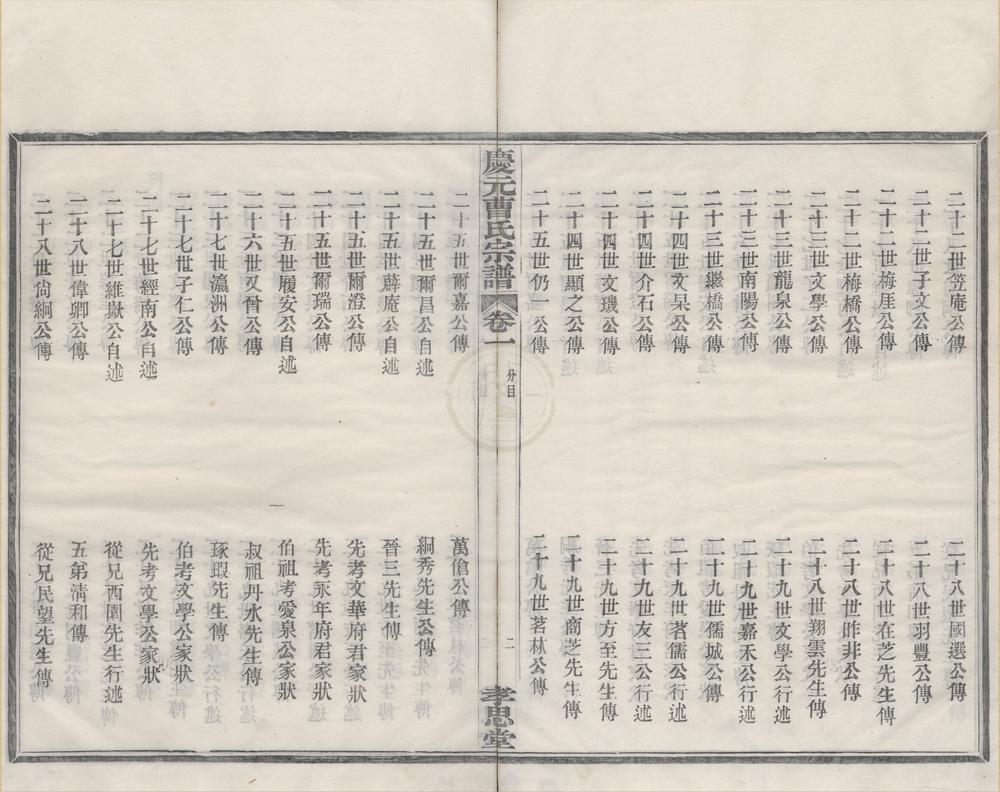 二十二世笠庵公傳
二十二世子文公傳
二十二世梅厓公傳
二十二世梅橋公傳
二十三世文學公傳
二十三世龍泉公傳
二十三世南陽公傳
二十三世繼橋公傳
二十四世文杲公傳
二十四世介石公傳
二十四世文璣公傳
二十四世顯之公傳
二十五世仍一公傳
二十五世爾嘉公傳
二十五世爾昌公自述
二十五世薜庵公自述
二十五世爾澄公傳
二十五世爾瑞公傳
二十五世履安公自述
二十六世又晉公傳
二十七世瀛洲公傳
二十七世子仁公傳
二十七世經南公自述
二十七世維嶽公自述
二十八世偉卿公傳
二十八世尙絅公傳
二十八世國選公傳
二十八世羽豐公傳
二十八世在芝先生傳
二十八世昨非公傳
二十八世翔雲先生傳
二十九世文學公行述
二十九世嘉禾公行述
二十九世儒城公傳
二十九世茗儒公行述
二十九世友三公行述
二十九世方至先生傳
二十九世商芝先生傳
二十九世茗林公傳
萬傖公傳
絅秀先生公傳
晉三先生傳
先考文華府君家狀
先考永年府君家狀
伯祖考愛泉公家狀
叔祖丹水先生傳
琢瑕先生傳
伯考文學公家狀
先考文學公家狀
從兄西園先生行述
五弟淸和傳
從兄民望先生傳
慶元曹氏宗譜
卷一
分目
二
孝思堂